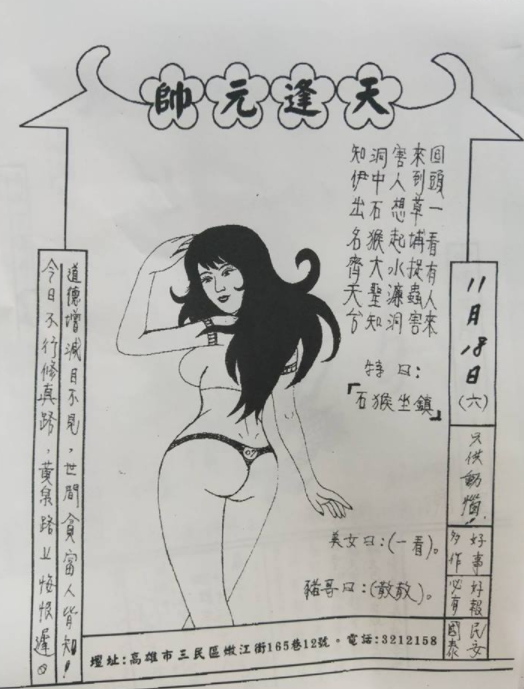 天逢元帥
回頭一看有人來
來到草埔捉蟲害
害人想起水濂洞
洞中石猴大聖知
知伊出名齊天兮
特曰：
「石猴坐鎮」
11月18日(六)
只供動
好事
多作
好報
必有
民安
國泰
美女曰：(一看)。
豬哥曰：(敦敦)。
道德增減目不見，世間貪富人皆知！
今日不行修真路，黃泉路上悔恨遲。
壇址：高雄市三民區嫩江街165巷12號。電話：3212158